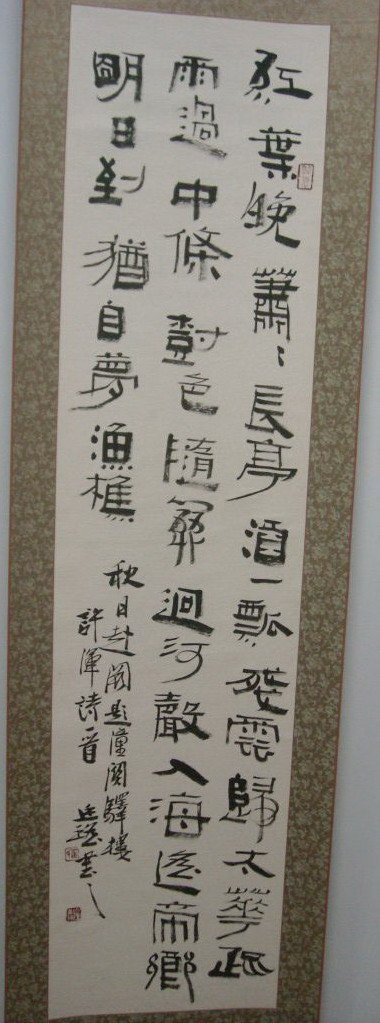 紅葉晚蕭〻長亭酒一瓢殘雲歸太華疏
雨過中條樹色隨關迥河聲入海遙帝鄉
明日到猶自夢漁樵
秋日赴闕題潼關驛樓
許渾詩一首 書